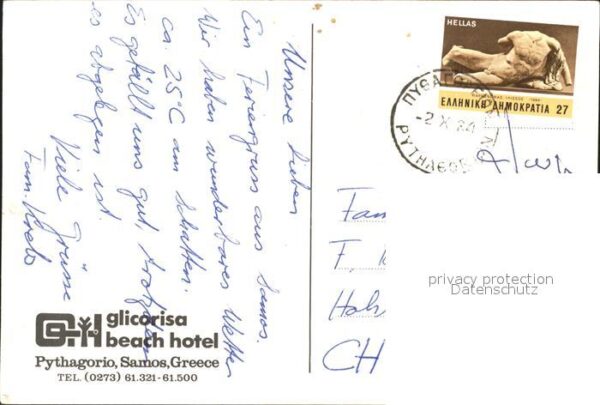 Unsere Lieben
Ein Feriengruss aus Samos.
Wir haben wunderbares Wetter
ca. 25°C am Schatten.
Es gefällt uns gut, trotzdem
es abgelegen ist.
Viele Grüsse
Fam. Krebs
glicorisa
beach hotel
Pythagorio, Samos, Greece
TEL. (0273) 61.321-61.500
HELLAS
ΕΛΛΗΝΙΚΗ ΔΗΜΟΚΡΑΤΙΑ 27
-2 X 84
Fam
F.
Hoh
CH
privacy protection
Datenschutz